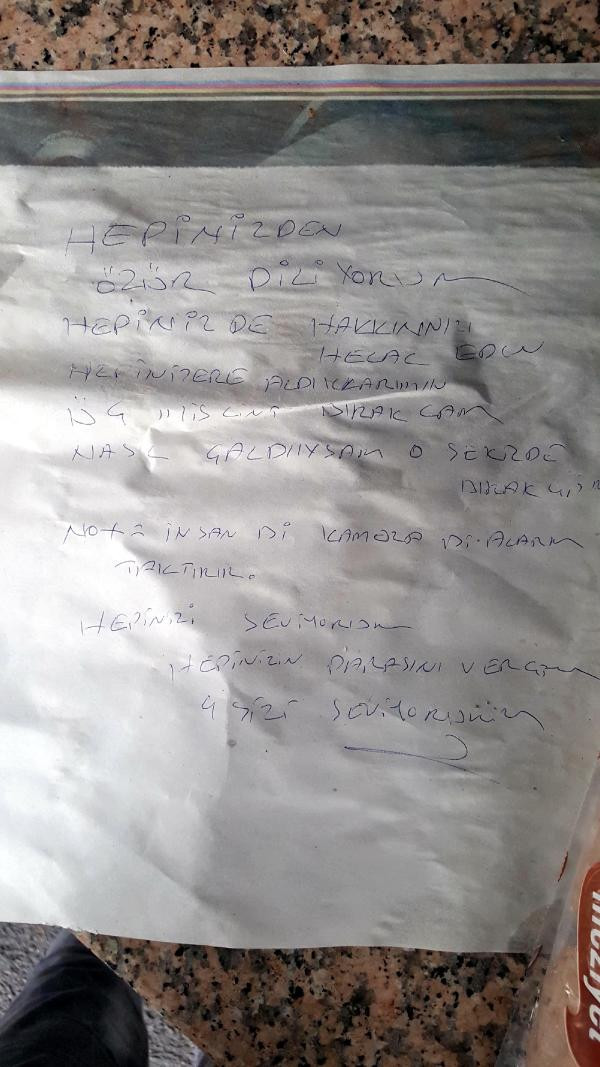 HEPİNİZDEN
ÖZÜR DİLİYORUM
HEPİNİZ DE HAKKINNIZI
HELAL EDUN
HEPİNİZERE ALDIKKARIMIN
BIRAKCAM
NASL GALDIIYSAM O SEKİLDE
NOT = İNSAN Bİ KAMERA Bİ ALARM
TAKTIRIR.
HEPİNİZİ SEVİYORUM
HEPİNİZİN PARASINI VERCEM
4 SİZİ SEVİYORUM
meziyet